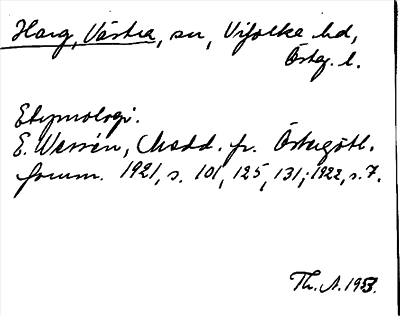 Harg, Västra, sn, Vifolka hd,
Östg. l.
Etymologi.
E. Wessén, Medd. fr. Östergötl.
fornm. 1921, s. 101, 125, 131; 1922, s. 7.
Th. A. 1953.